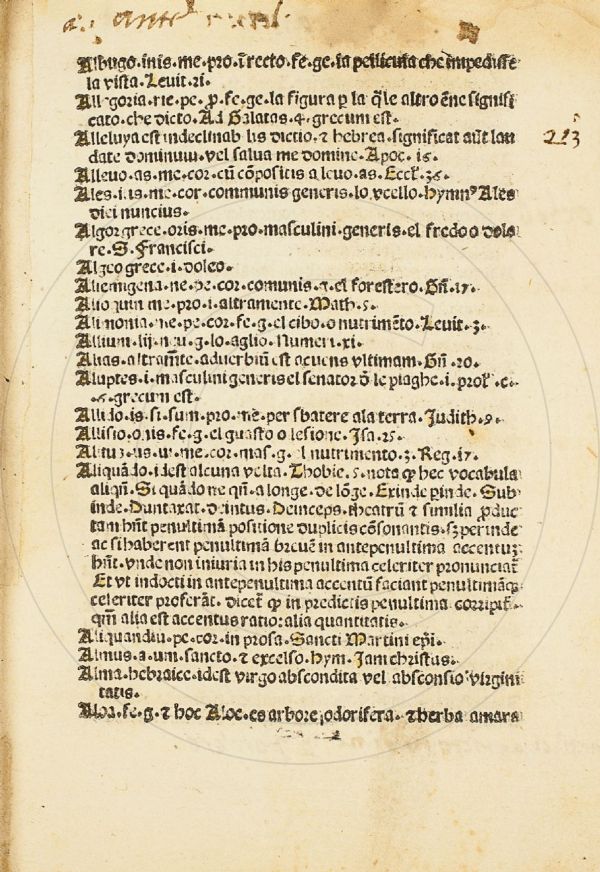 Albugo.inis.me.pro.ī recto.fe.ge.la pellicula che impedisse
la vista.Leuit.ri.
Allegoria.rie.pe.p̄.fe.ge.la figura p̱ la q̄le altro ēne signifi
cato.che dicto.Ad Galatas.4.grecum est.
Alleluya est indeclinab lis dictio.⁊ hebrea.significat aūt lau
date dominum.vel salua me domine.Apoc.16.
213
Alleuo.as.me.cor.cū cōpositis a leuo.as.Eccl.36.
Ales.itis.me.cor.communis generis.lo vcello.hymnꝰ Ales
diei nuncius.
Algor grece.oris.me.pro.masculini.generis.el fredo o dolo
re.S.Francisci.
Algeo grece.i.doleo.
Alienigena.ne.pe.cor.comunis.g.el forestero.Gn̄.17.
Alio quin me.pro.i.altramente.Math.5.
Alimonia.nie.pe.cor.fe.g.el cibo.o nutrimēto.Leuit.3.
Allium.lij.neu.g.lo aglio.Numeri.xi.
Alias.altram̄te.aduerbiū est acuens vltimam.Gn̄.20.
Aluptes.i.masculini generis el senator ō le piaghe.i.prol.c.
6.grecum est.
Allido.is.si.sum.pro.me.per sbatere ala terra.Judith.9.
Allisio.onis.fe.g.el guasto o lesione.Isa.25.
Altus.us.ui.me.cor.mas.g.el nutrimento.3.Reg.17.
Aliquādo.idest alcuna volta.Thobie.5.nota ꝙ hec vocabula
aliqn̄.Si quādo ne qn̄.a longe.de lōge.Exinde p̱inde.Sub
inde.Duntaxat.deintus.Deinceps.theatrū ⁊ similia p̄duc
tam hn̄t penultimā positione duplicis cōsonantis.sꝫ perinde
ac si haberent penultimā breuē in antepenultima accentuꝫ
hn̄t.vnde non iniuria in his penultima celeriter pronunciāt
Et vt indocti in antepenultima accentū faciant penultimāqꝫ
celeriter proferāt.dicēt ꝙ in predictis penultima corripit.
qm̄ alia est accentus ratio:alia quantitatis.
Aliquandiu.pe.cor.in prosa.Sancti Martini ep̄i.
Almus.a.um.sancto.⁊ excelso.hym.Jam christus.
Alma.hebraice.idest virgo abscondita vel absconsio virgini
tatis.
Aloa.fe.g.⁊ hoc Aloe.es arbore odorifera.⁊ herba amara